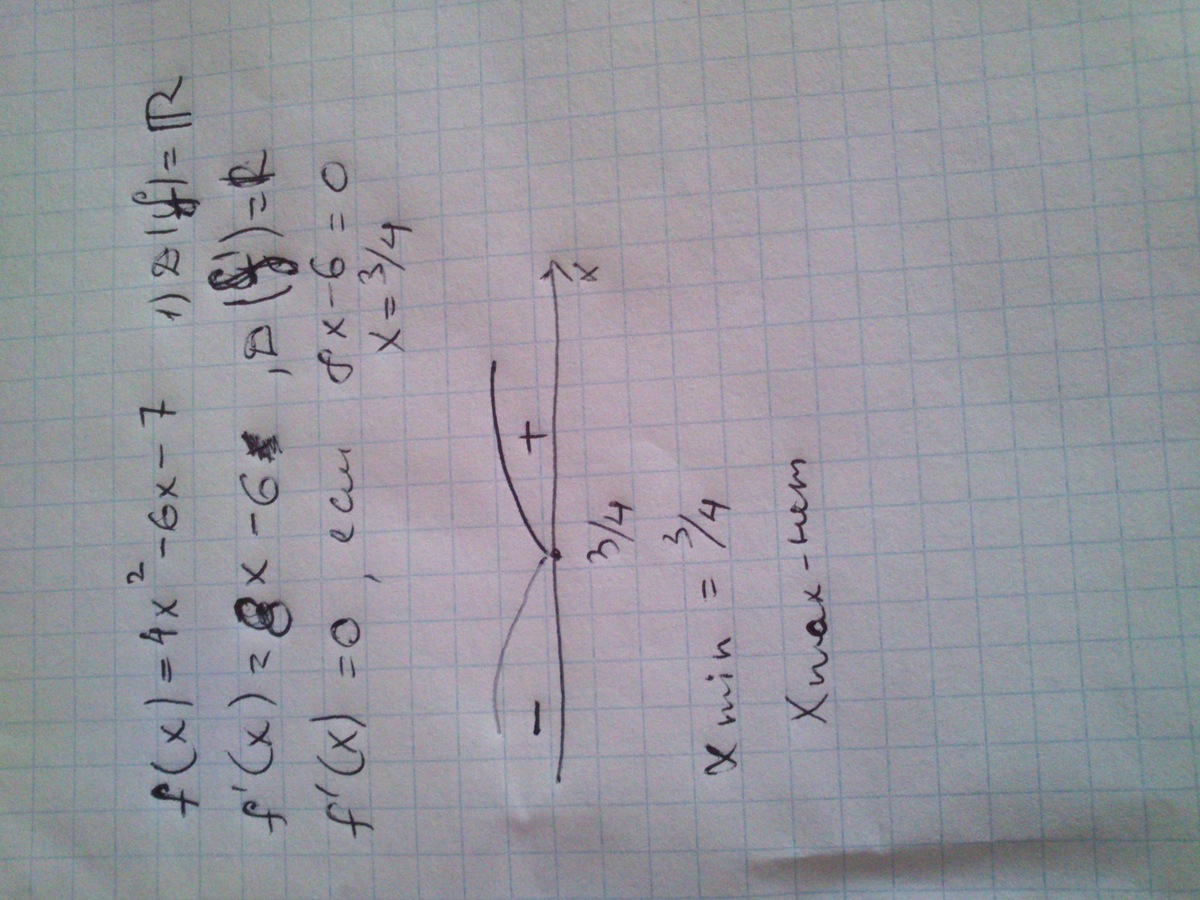 f(x) = 4x² - 6x - 7 1) D(f) = ℝ
f'(x) = 8x - 6 , D(f') = R
f'(x) = 0 , если 8x - 6 = 0
x = 3/4
- +
3/4 x
x min = 3/4
x max - нет